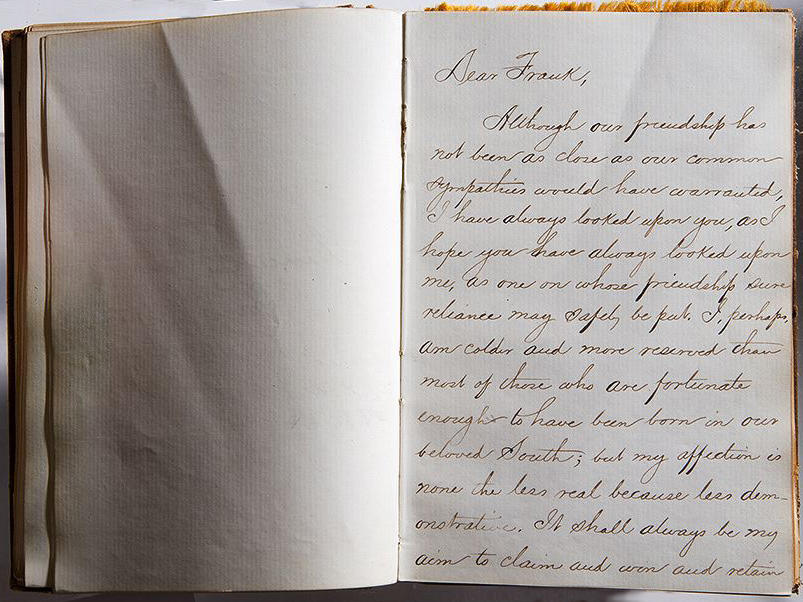 Dear Frank,
Although our friendship has
not been as close as our common
sympathies would have warranted,
I have always looked upon you, as I
hope you have always looked upon
me, as one on whose friendship sure
reliance may safely be put. I, perhaps,
am colder and more reserved than
most of those who are fortunate
enough to have been born in our
beloved South; but my affection is
none the less real because less dem-
onstrative. It shall always be my
aim to claim and won and retain